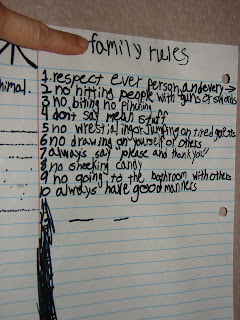 family rules
nimal.
1. respect ever person, and every →
2 no hitting people with guns or swords
3 no biting no pinching
4 don't say mean stuff
5 no wrestling or jumping on tired guests
6 no drawing on yourself or others
7 always say "please and thankyou"
8 no sneeking candy
9 no going to the bathroom with others
10 always have good manners